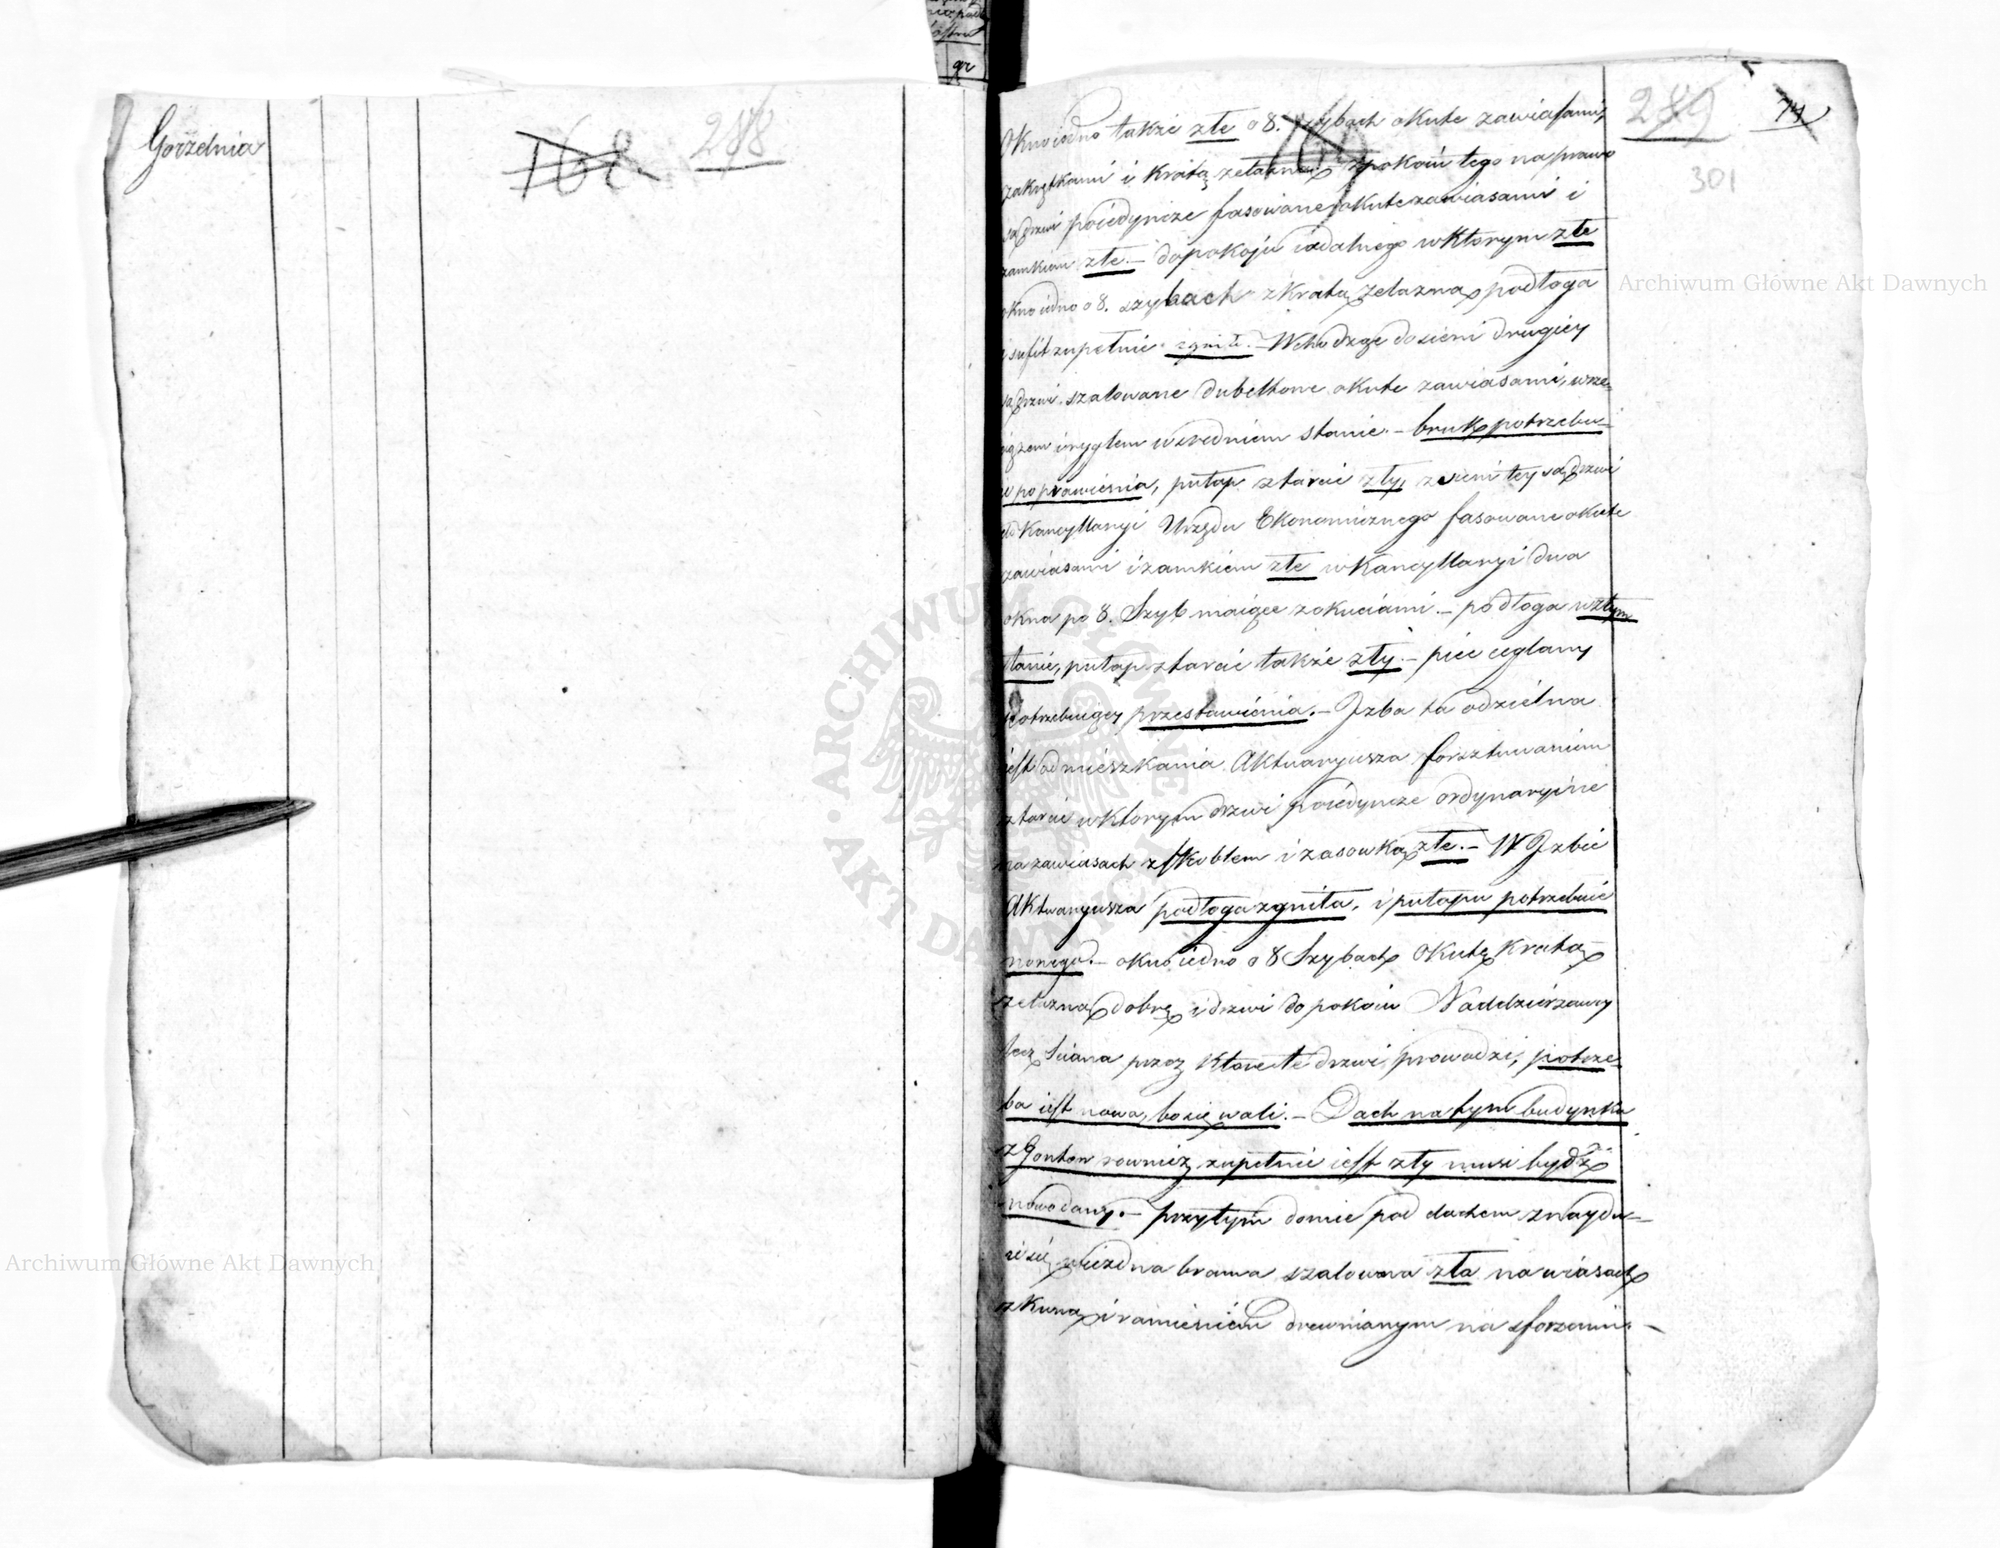 gr
Gorzelnia
168. 288
289 74
301
Okno iedno także złe o 8. szybach okute zawiasami,
zakrętkami i kratą żelazną z pokoiu tego na prawo
są drzwi poiedyncze fasowane okute zawiasami i
zamkiem złe. – do pokoju iadalnego w ktorym złe
okno iedno o 8. szybach z kratą żelazną, podłoga
i sufit zupełnie zgniłe. – Wchodząc do sieni drugiey
są drzwi szalowane dubeltowe okute zawiasami, wrze-
ciązem i ryglem w sredniem stanie. – bruk potrzebu-
ie poprawienia, pułap z tarcic zły, z sieni tey są drzwi
do Kancyllaryi Urzędu Ekonomicznego fasowane okute
zawiasami i zamkiem złe w Kancyllaryi dwa
okna po 8. Szyb maiące z okuciami. – podłoga w złym
stanie, pułap z tarcic także zły. – piec ceglany
potrzebuiący przestawienia. – Izba ta odzielna
iest od mieszkania Aktuaryusza forsztowaniem
z tarcic w ktorym drzwi poiedyncze ordynaryine
na zawiasach z skoblem i zasowką złe. – W Izbie
Aktuaryusza podłoga zgniła, i pułapu potrzebuie
nowego. – okno iedno o 8 Szybach okute kratą
żelazną dobrę i drzwi do pokoiu Naddzierżawcy
lecz sciana przez ktore te drzwi prowadzi, potrze-
ba iest nowa, bo się wali. – Dach na tym budynku
z Gontow rownież zupełnie iest zły musi bydź
nowo dany. – przy tym domie pod dachem znaydu-
ie się wiezdna brama szalowana zła na wiasach
z kuną i ramieniem drewnianym na sforzeniu –